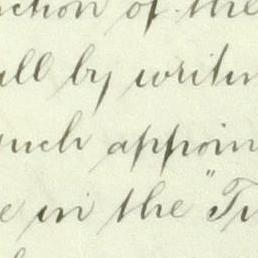 ction of the
all by writin
such appoin
e in the "Tu